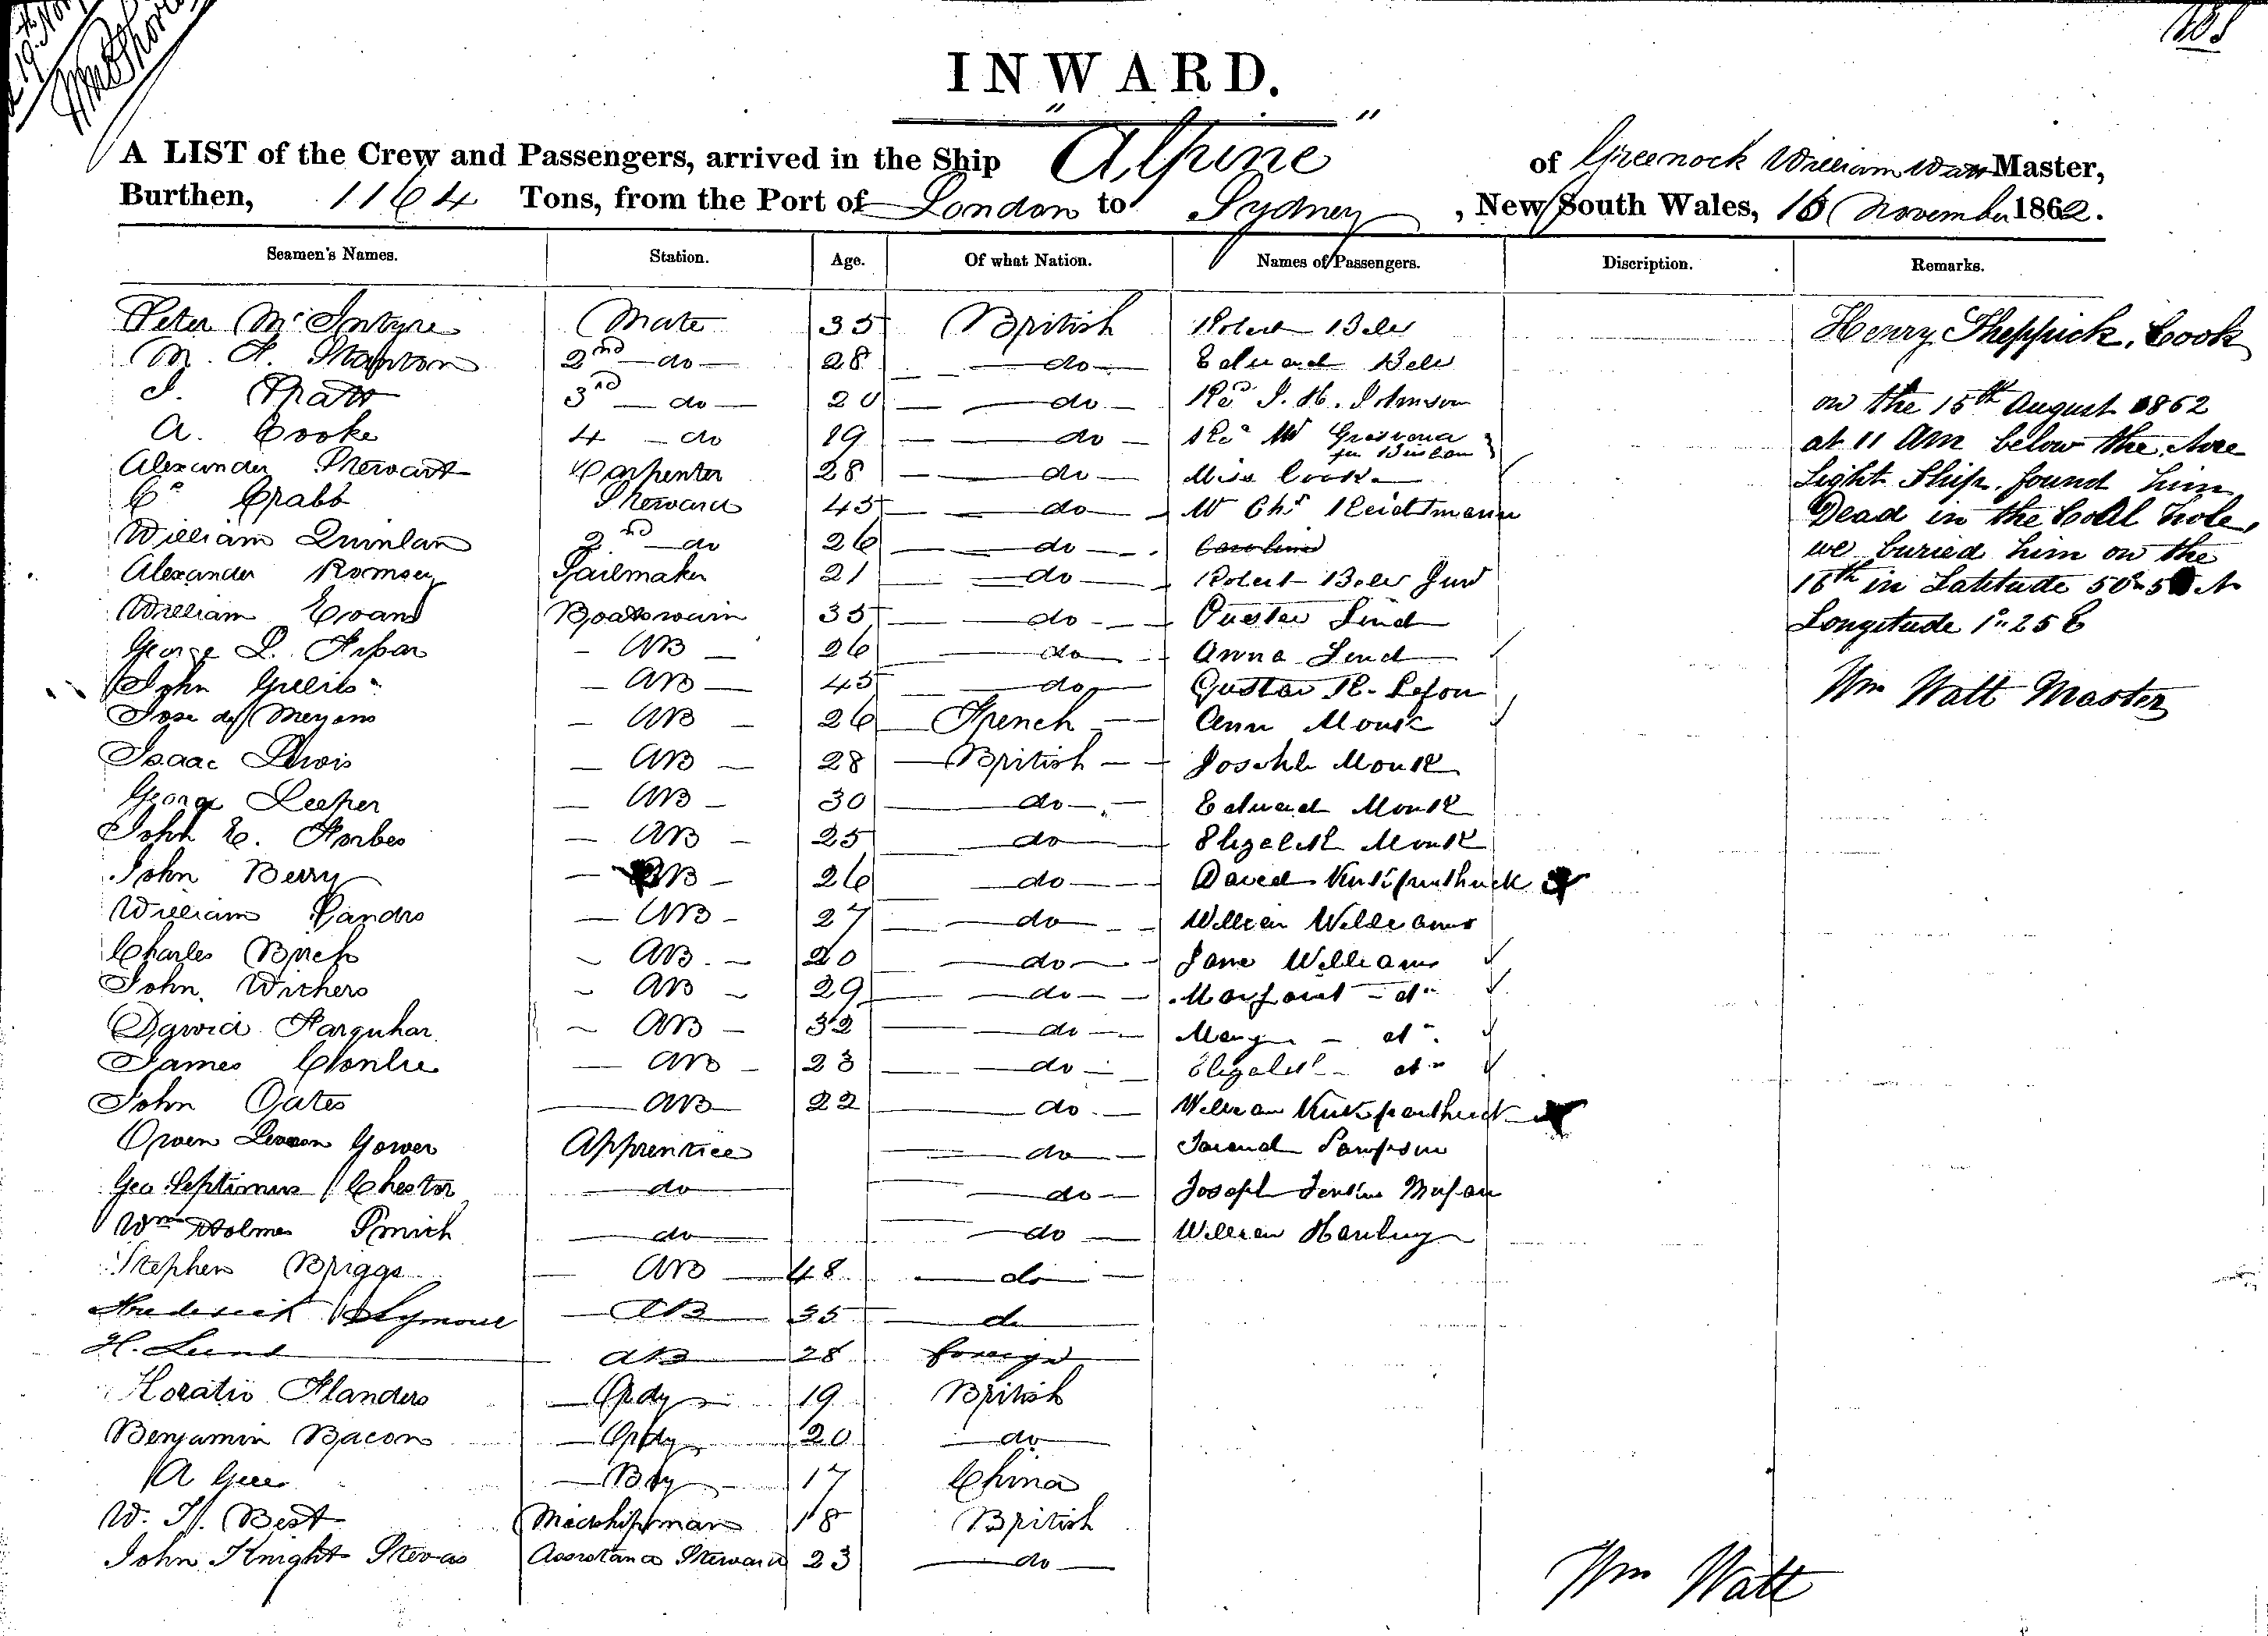 INWARD.
A LIST of the Crew and Passengers, arrived in the Ship "Alpine" of Greenock William Watt Master,
Burthen, 1164 Tons, from the Port of London to Sydney, New South Wales, 16 November 1862.
Seamen's Names. Station. Age. Of what Nation. Names of Passengers. Discription. Remarks.
Peter McIntyre Mate 35 British Robert Bell Henry Sheppick. Cook
2nd do 28 do Edward Bell
3rd do 20 do Revd J. H. Johnson on the 15th August 1862
A. Cooke 4 do 19 do at 11 Am below the Nore
Alexander Stewart Carpenter 28 do Miss Cook Light Ship. found him
Crabb Steward 45 do Dead in the Coal hole,
William Quinlan 2nd do 26 do we buried him on the
Alexander Romsey Sailmaker 21 do Robert Bell Jun 16th in Latitude N
William Evans Boatswain 35 do Lind Longitude 1° 25 E
George L. AB 26 do Anna Lind
John AB 45 do Gustav Wm Watt Master
AB 26 French Ann Monk
Isaac Lewis AB 28 British Joseph Monk
George Leeper AB 30 do Edward Monk
John E. Forbes AB 25 do Elizabeth Monk
John Berry AB 26 do David
William Sandrs AB 27 do William Williams
Charles Birch AB 20 do Jane Williams
John Withers AB 29 do Margaret do
David Farquhar AB 32 do Mary do
James AB 23 do Elizabeth do
John Oates AB 22 do William
Owen Gower Apprentice do Sampson
Geo Septimus Chester do do Joseph Jenkins
Wm Holmes Smith do do William
Stephen Briggs AB 48 do
Frederick Seymour AB 35 do
H. Lund AB 28 foreign
Horatio Flanders Ordy 19 British
Benjamin Bacon Ordy 20 do
Boy 17 China
W. H. Best Midshipman 18 British
John Knight Assistand Steward 23 do
Wm Watt